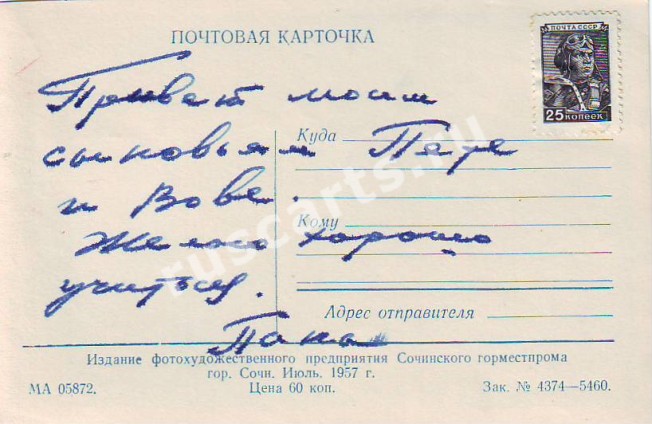 ПОЧТОВАЯ КАРТОЧКА
ПОЧТА СССР
25 КОПЕЕК
Привет моим
Куда
сыновьям Пете
и Вове.
Кому
Желаю хорошо
учиться.
Адрес отправителя
Папа
Издание фотохудожественного предприятия Сочинского горместпрома
гор. Сочи. Июль. 1957 г.
МА 05872.
Цена 60 коп.
Зак. № 4374—5460.
ruscarts.ru